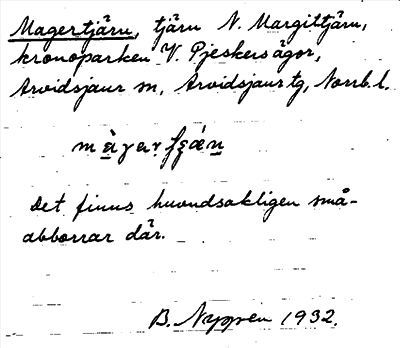 Magertjärn, tjärn N. Margittjärn,
kronoparken V. Pjeskersägor,
Arvidsjaur sn, Arvidsjaur tg, Norrb. l.
Det finns huvudsakligen små-
abborrar där.
B. Nyppen 1932.